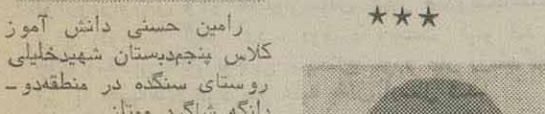 رامین حسنی دانش آموز
کلاس پنجم‌دبستان شهیدخلیلی
روستای سنگده در منطقه‌دو‌ـ
دانگه شاگرد ممتاز
★★★